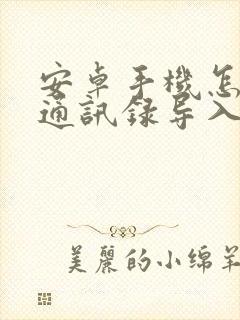 安卓手機怎
通訊録导入
美麗的小绵羊